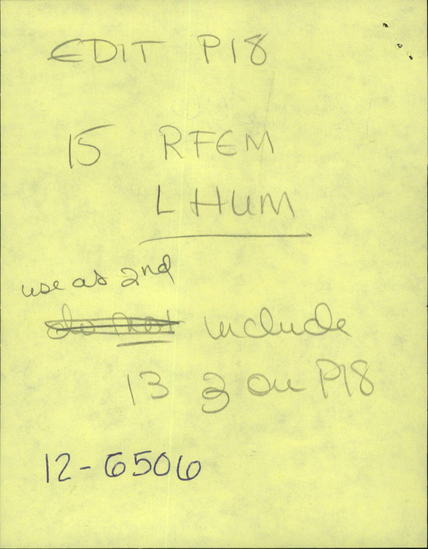 EDIT P18
15 RFEM
L HUM
use as 2nd
do not include
13 3 on P18
12-6506